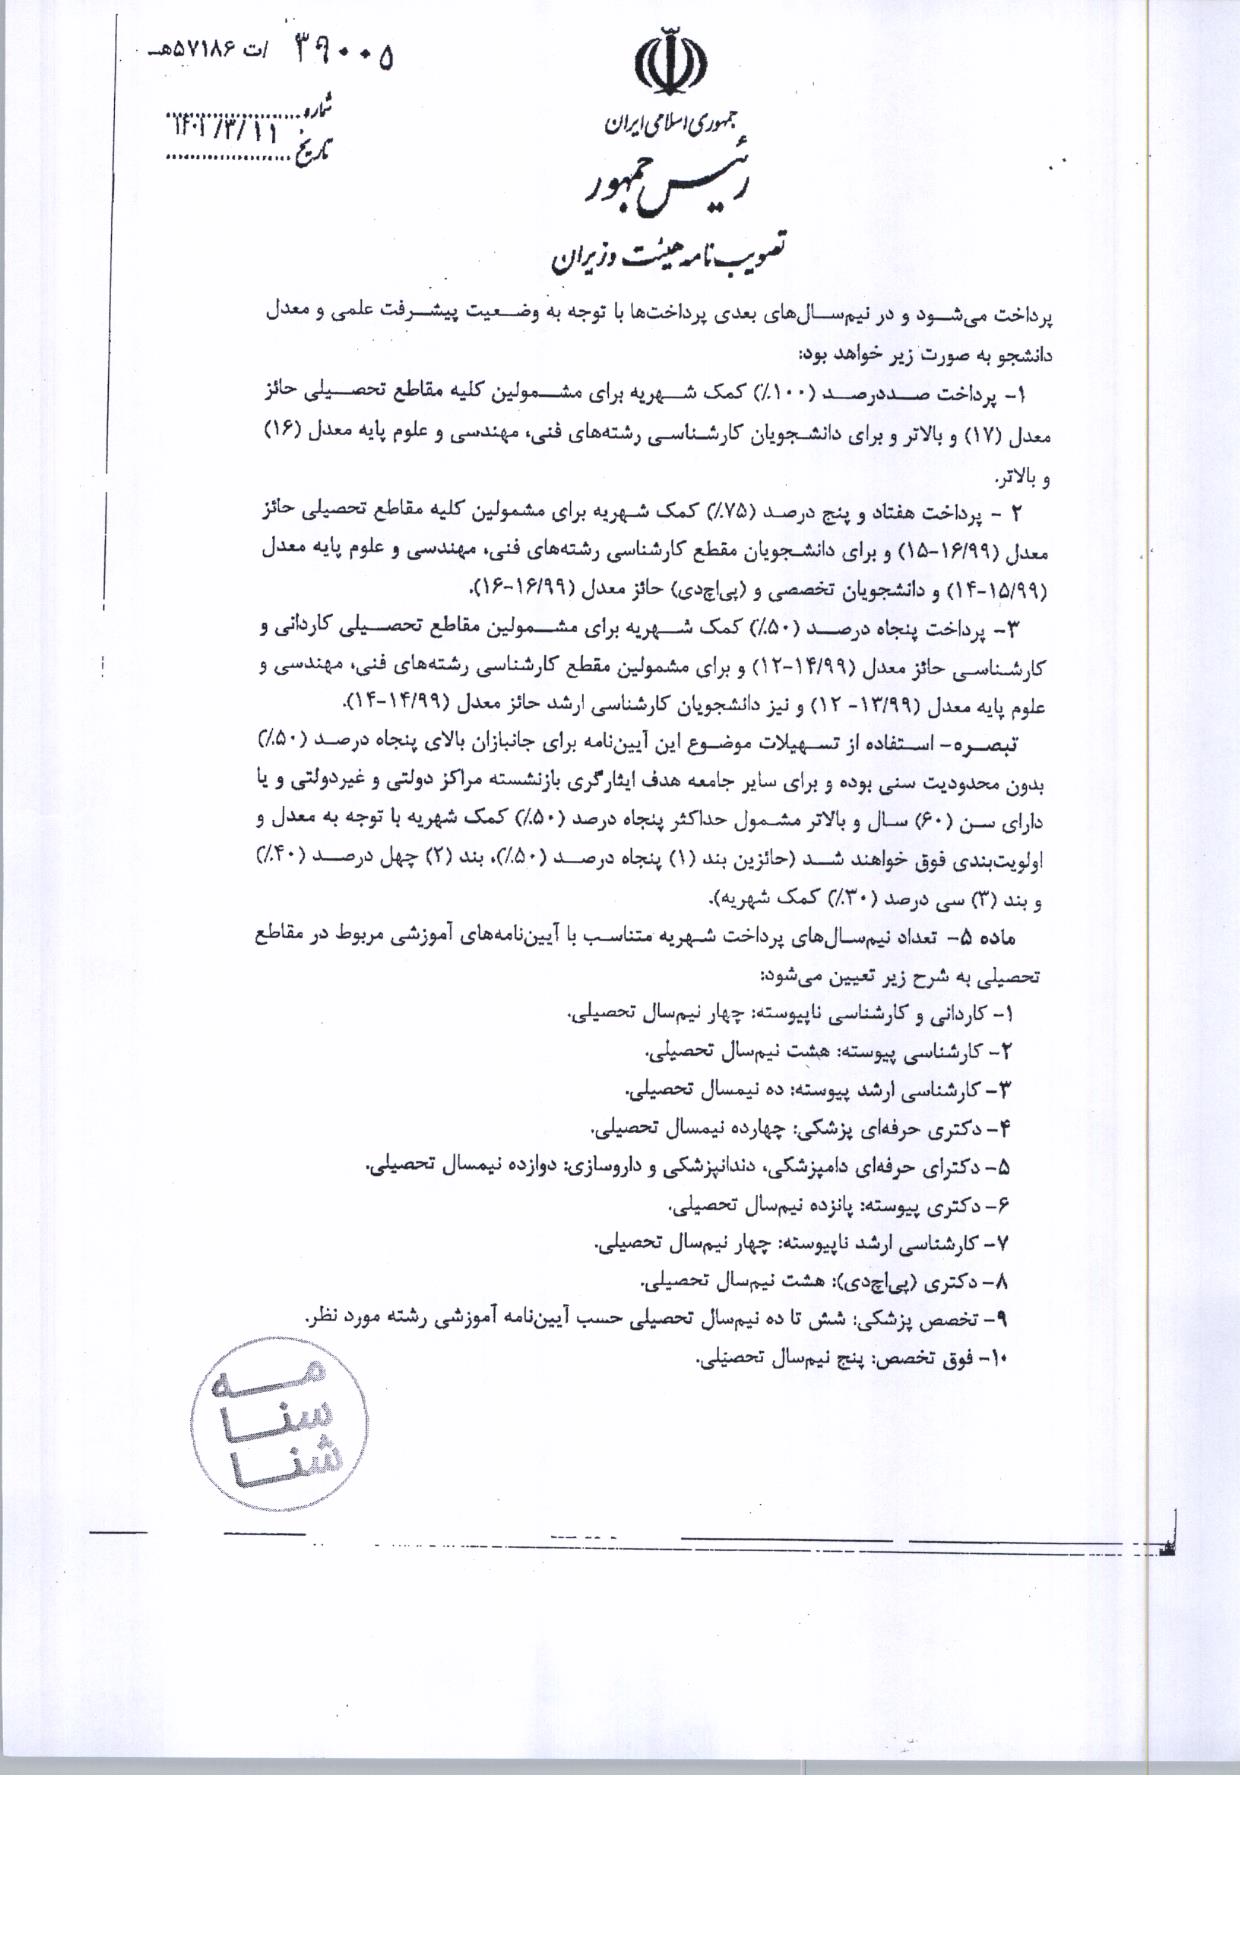 ۳۹۰۰۵ /ت ۵۷۱۸۶هـ
شماره
۱۴۰۲/۳/۱۱
تاریخ
جمهوری اسلامی ایران
رئیس جمهور
تصویب نامه هیئت وزیران
پرداخت می‌شود و در نیم‌سال‌های بعدی پرداخت‌ها با توجه به وضعیت پیشرفت علمی و معدل
دانشجو به صورت زیر خواهد بود:
۱- پرداخت صددرصد (۱۰۰٪) کمک شهریه برای مشمولین کلیه مقاطع تحصیلی حائز
معدل (۱۷) و بالاتر و برای دانشجویان کارشناسی رشته‌های فنی، مهندسی و علوم پایه معدل (۱۶)
و بالاتر.
۲ - پرداخت هفتاد و پنج درصد (۷۵٪) کمک شهریه برای مشمولین کلیه مقاطع تحصیلی حائز
معدل (۱۶/۹۹-۱۵) و برای دانشجویان مقطع کارشناسی رشته‌های فنی، مهندسی و علوم پایه معدل
(۱۵/۹۹-۱۴) و دانشجویان تخصصی و (پی‌اچ‌دی) حائز معدل (۱۶/۹۹-۱۶).
۳- پرداخت پنجاه درصد (۵۰٪) کمک شهریه برای مشمولین مقاطع تحصیلی کاردانی و
کارشناسی حائز معدل (۱۴/۹۹-۱۲) و برای مشمولین مقطع کارشناسی رشته‌های فنی، مهندسی و
علوم پایه معدل (۱۳/۹۹- ۱۲) و نیز دانشجویان کارشناسی ارشد حائز معدل (۱۴/۹۹-۱۴).
تبصره- استفاده از تسهیلات موضوع این آیین‌نامه برای جانبازان بالای پنجاه درصد (۵۰٪)
بدون محدودیت سنی بوده و برای سایر جامعه هدف ایثارگری بازنشسته مراکز دولتی و غیردولتی و یا
دارای سن (۶۰) سال و بالاتر مشمول حداکثر پنجاه درصد (۵۰٪) کمک شهریه با توجه به معدل و
اولویت‌بندی فوق خواهند شد (حائزین بند (۱) پنجاه درصد (۵۰٪)، بند (۲) چهل درصد (۴۰٪)
و بند (۳) سی درصد (۳۰٪) کمک شهریه).
ماده ۵- تعداد نیم‌سال‌های پرداخت شهریه متناسب با آیین‌نامه‌های آموزشی مربوط در مقاطع
تحصیلی به شرح زیر تعیین می‌شود:
۱- کاردانی و کارشناسی ناپیوسته: چهار نیم‌سال تحصیلی.
۲- کارشناسی پیوسته: هشت نیم‌سال تحصیلی.
۳- کارشناسی ارشد پیوسته: ده نیمسال تحصیلی.
۴- دکتری حرفه‌ای پزشکی: چهارده نیمسال تحصیلی.
۵- دکترای حرفه‌ای دامپزشکی، دندانپزشکی و داروسازی: دوازده نیمسال تحصیلی.
۶- دکتری پیوسته: پانزده نیم‌سال تحصیلی.
۷- کارشناسی ارشد ناپیوسته: چهار نیم‌سال تحصیلی.
۸- دکتری (پی‌اچ‌دی): هشت نیم‌سال تحصیلی.
۹- تخصص پزشکی: شش تا ده نیم‌سال تحصیلی حسب آیین‌نامه آموزشی رشته مورد نظر.
۱۰- فوق تخصص: پنج نیم‌سال تحصیلی.
مه
سنا
شنا